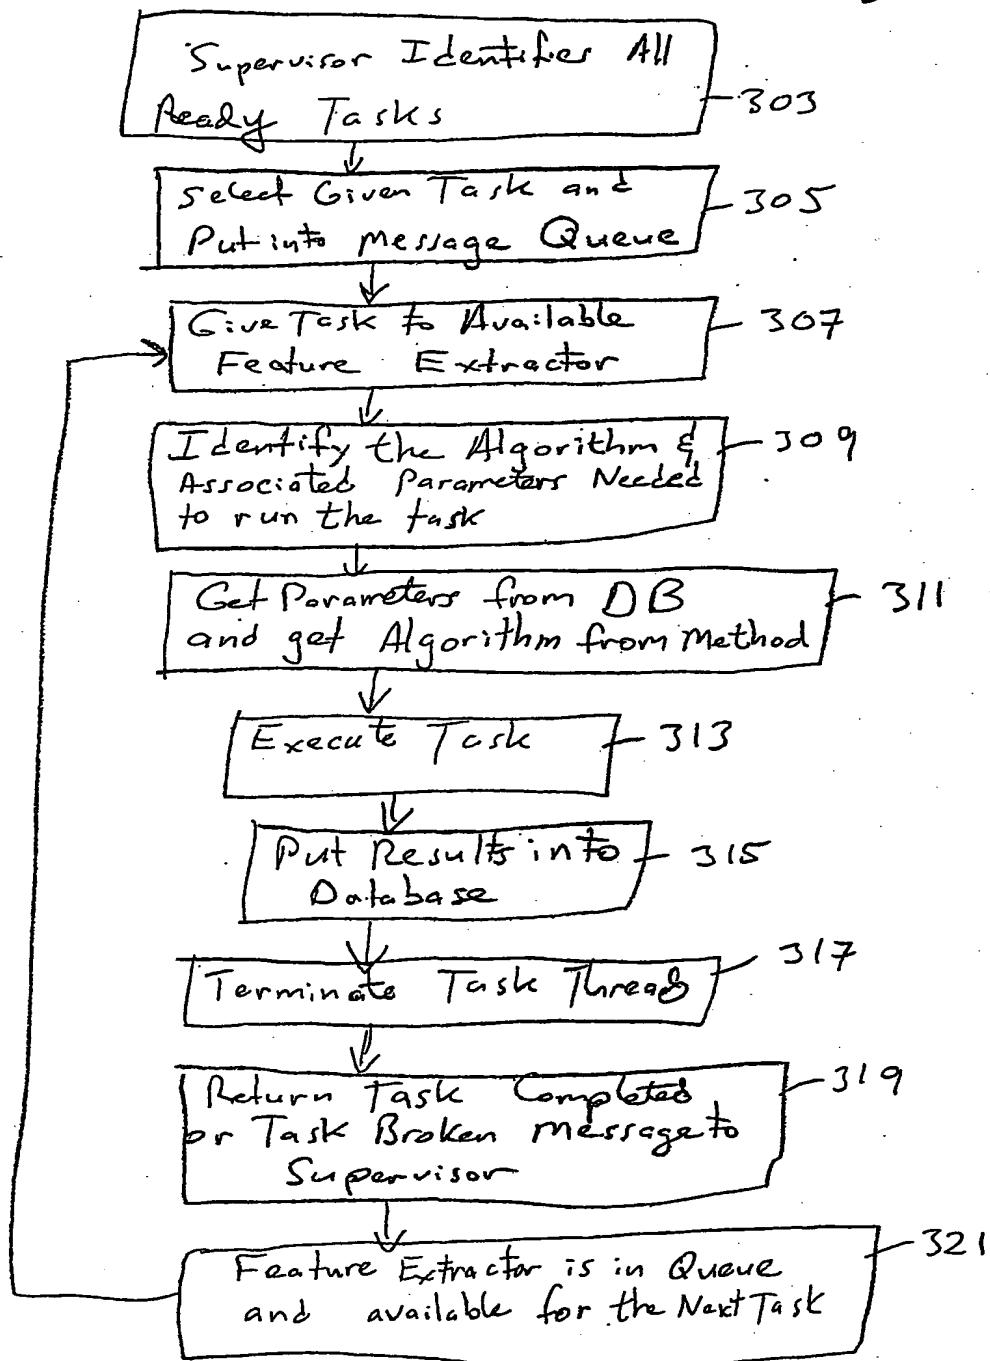 Supervisor Identifies All
Ready Tasks
303
Select Given Task and
Put into Message Queue
305
Give Task to Available
Feature Extractor
307
Identify the Algorithm &
Associated Parameters Needed
to run the task
309
Get Parameters from DB
and get Algorithm from Method
311
Execute Task
313
Put Results into
Database
315
Terminate Task Thread
317
Return Task Completed
or Task Broken Message to
Supervisor
319
Feature Extractor is in Queue
and available for the Next Task
321